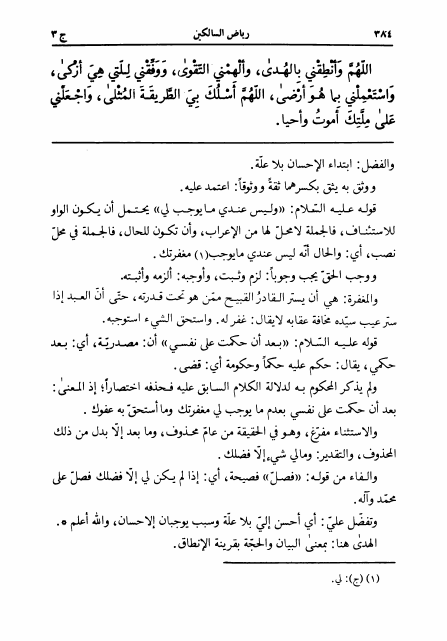 ٣٨٤ رياض السالكين ج ٣
اللهُمَّ وَأَنْطِقْني بِالهُدىٰ، وَألهِمْني التَّقْوىٰ، وَوَفِّقْني لِلَّتي هِيَ أزْكىٰ،
وَاسْتَعْمِلْني بِما هُوَ أرْضىٰ، اللهُمَّ أسْلُكْ بِيَ الطَّريقَةَ المُثْلىٰ، وَاجْعَلْني
عَلىٰ مِلَّتِكَ أموتُ وأحيا.
والفضل: ابتداء الإحسان بلا علّة.
ووثق به يثق بكسرهما ثقةً ووثوقاً: اعتمد عليه.
قوله عليه السّلام: «وليس عندي ما يوجب لي» يحتمل أن يكون الواو
للاستئناف، فالجملة لا محلّ لها من الإعراب، وأن تكون للحال، فالجملة في محلّ
نصب، أي: والحال أنّه ليس عندي مايوجب(١) مغفرتك.
ووجب الحقّ يجب وجوباً: لزم وثبت، وأوجبه: ألزمه وأثبته.
والمغفرة: هي أن يستر القادرُ القبيح ممّن هو تحت قدرته، حتّى أنّ العبد إذا
ستر عيب سيّده مخافة عقابه لايقال: غفر له. واستحق الشيء استوجبه.
قوله عليه السّلام: «بعد أن حكمت على نفسي» أن: مصدريّة، أي: بعد
حكمي، يقال: حكم عليه حكماً وحكومة أي: قضى.
ولم يذكر المحكوم به لدلالة الكلام السابق عليه فحذفه اختصاراً؛ إذ المعنىٰ:
بعد أن حكمت على نفسي بعدم ما يوجب لي مغفرتك وما أستحقّ به عفوك.
والاستثناء مفرّغ، وهو في الحقيقة من عامّ محذوف، وما بعد إلّا بدل من ذلك
المحذوف، والتقدير: ومالي شيء إلّا فضلك.
والفاء من قوله: «فصلّ» فصيحة، أي: إذا لم يكن لي إلّا فضلك فصلّ على
محمّد وآله.
وتفضّل عليّ: أي أحسن إليّ بلا علّة وسبب يوجبان الإحسان، والله أعلم ٥.
الهدىٰ هنا: بمعنىٰ البيان والحجّة بقرينة الإنطاق.
(١) (ج): لي.